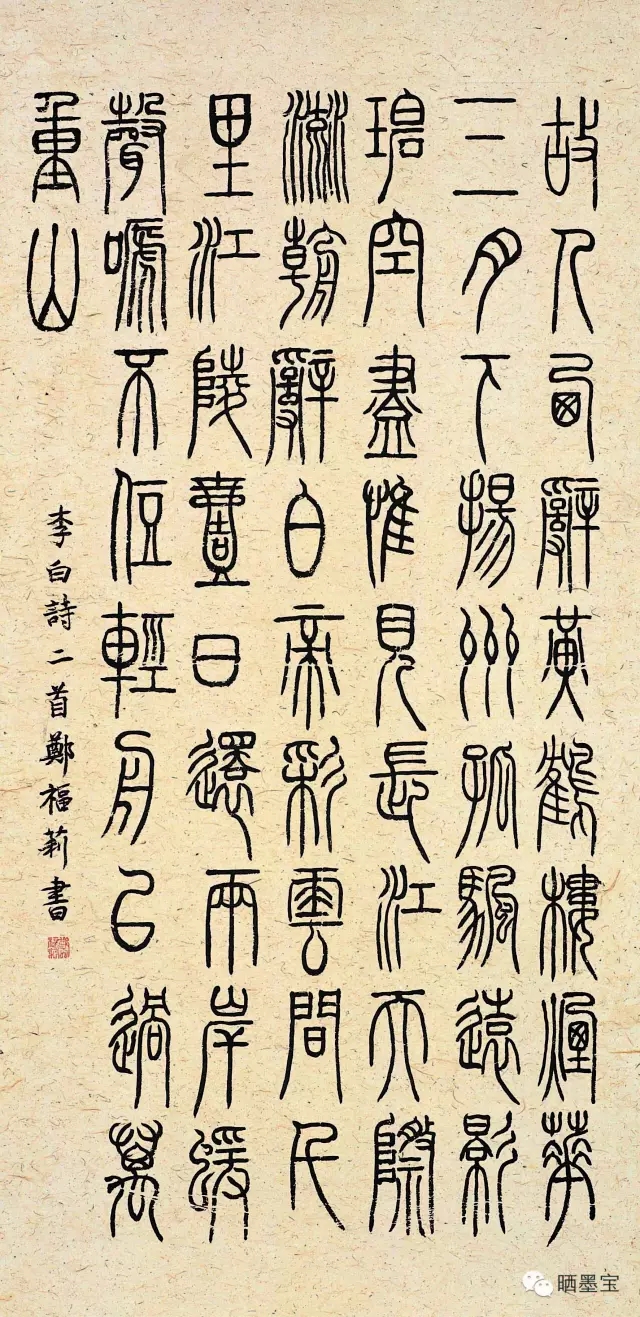 故人西辭黃鶴樓煙華
三月下揚州孤颿遠影
碧空盡惟見長江天際
流朝辭白帝彩雲間千
里江陵壹日還兩岸蝯
聲嗁不住輕舟已過萬
重山
李白詩二首鄭福莉書
晒墨宝